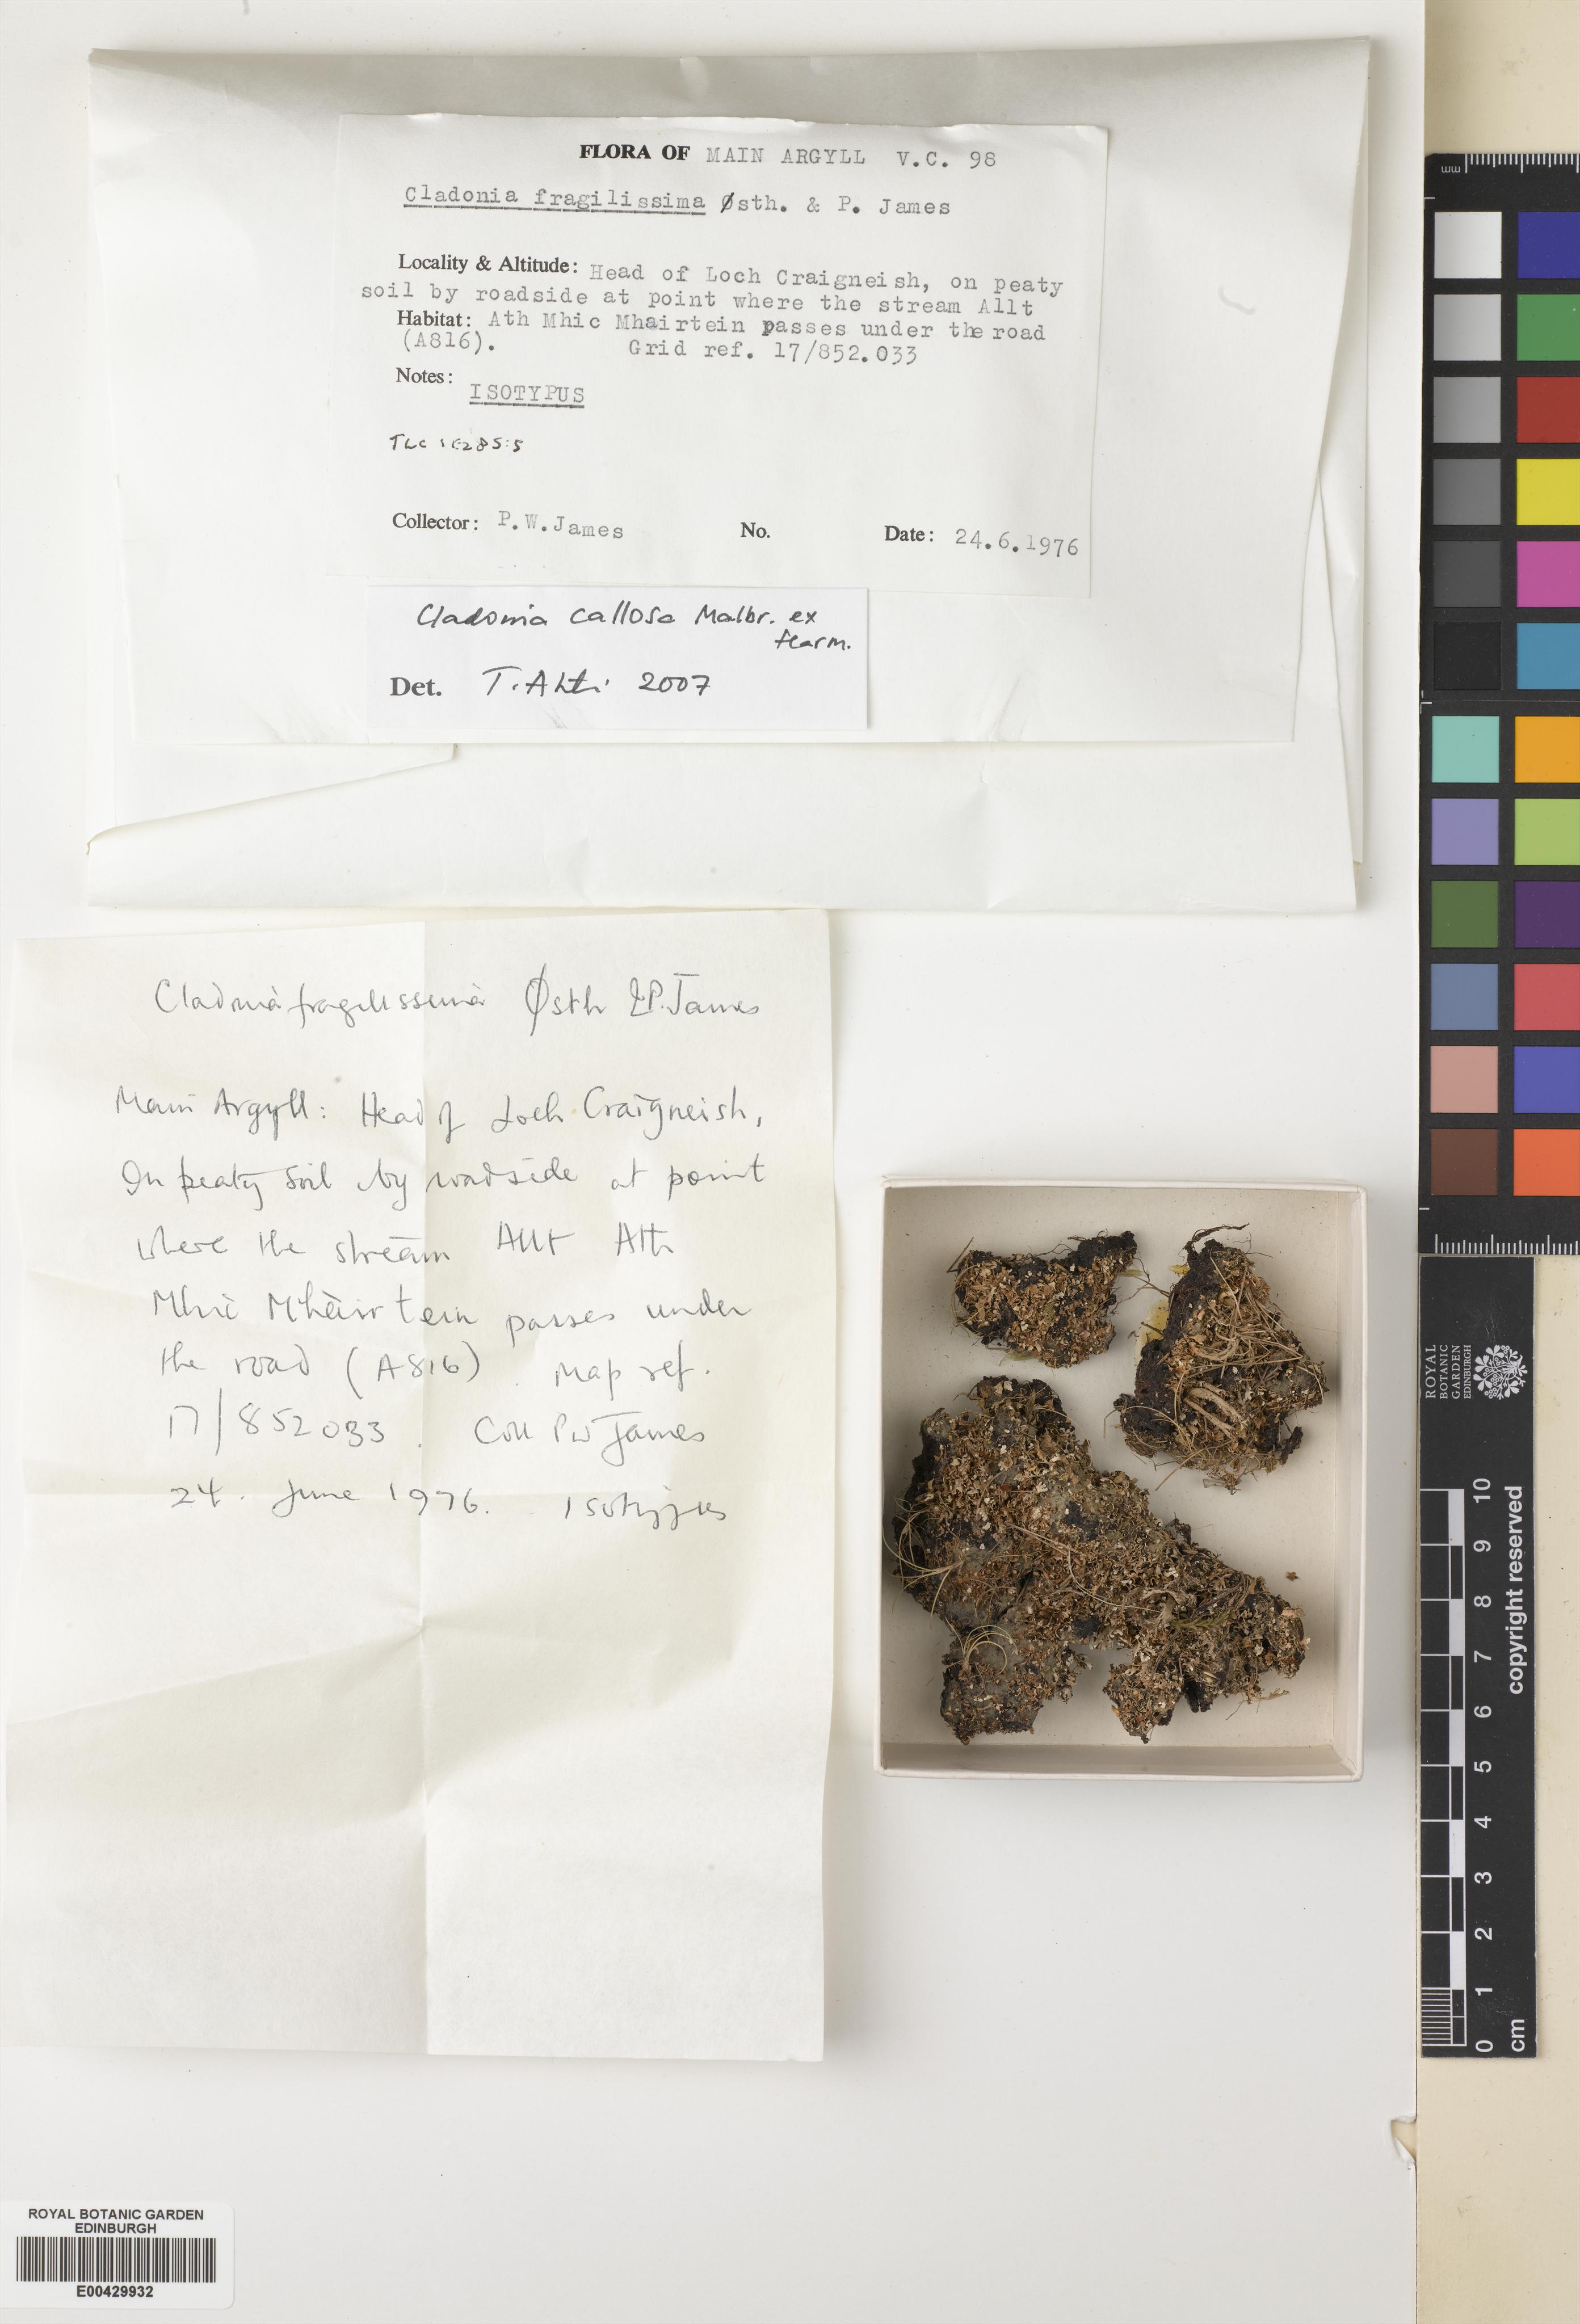 FLORA OF MAIN ARGYLL V.C. 98
Cladonia fragilissima Østh. & P. James
Locality & Altitude: Head of Loch Craigneish, on peaty
soil by roadside at point where the stream Allt
Habitat: Ath Mhic Mhairtein passes under the road
(A816). Grid ref. 17/852.033
Notes:
ISOTYPUS
TLC
Collector: P.W.James No. Date: 24.6.1976
Cladonia callosa Malbr. ex
Harm.
Det. T. Ahti 2007
Cladonia fragilissima Østh & P. James
Main Argyll: Head of Loch Craigneish,
On peaty soil by roadside at point
where the stream Allt Ath
Mhic Mhairtein passes under
the road (A816). Map ref.
17/852033. Coll PW James
24. June 1976. Isotypus
mm
ROYAL
BOTANIC
GARDEN
EDINBURGH
copyright reserved
10
9
8
7
6
5
4
3
2
1
0
cm
ROYAL BOTANIC GARDEN
EDINBURGH
E00429932